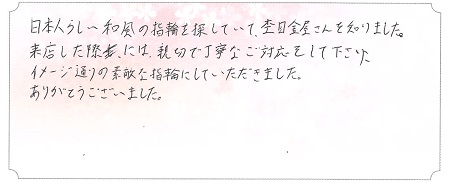 日本人らしい和風の指輪を探していて、杢目金屋さんを知りました。
来店した際には、親切で丁寧なご対応をして下さり、
イメージ通りの素敵な指輪にしていただきました。
ありがとうございました。